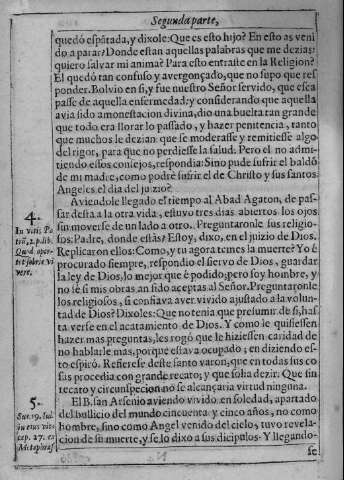 Segunda parte,
quedò espãtada, y dixole: Que es esto hijo? En esto as veni
do a parar? Donde estan aquellas palabras que me dezias;
quiero salvar mi anima? Para esto entraste en la Religion?
El quedò tan confuso y avergonçado, que no supo que res
ponder. Bolvio en si, y fue nuestro Señor servido, que esca
passe de aquella enfermedad: y considerando que aquella
avia sido amonestacion divina, dio una buelta tan grande
que todo era llorar lo passado, y hazer penitencia, tanto
que muchos le dezian que se moderasse y remitiesse algo
del rigor, para que no perdiesse la salud. Pero el no admi-
tiendo estos consejos, respondia: Sino pude sufrir el baldõ
de mi madre, como podrè sufrir el de Christo y sus santos
Angeles el dia del juizio?
4.
In vitis Pa
trũ, 2. p. lib.
Aviendole llegado el tiempo al Abad Agaton, de pas-
sar desta a la otra vida, estuvo tres dias abiertos los ojos
sin moverse de un lado a otro. Preguntaronle sus religio-
sos: Padre, donde estàs? Estoy, dixo, en el juizio de Dios.
Replicaron ellos: Como, y tu agora temes la muerte? Yo è
procurado siempre, respondio el siervo de Dios, guardar
la ley de Dios, lo mejor que è podido; pero soy hombre, y
no sè si mis obras an sido aceptas al Señor. Preguntaronle
los religiosos, si confiava aver vivido ajustado a la volun-
tad de Dios? Dixoles: Que no tenia que presumir de si, has
ta verse en el acatamiento de Dios. Y como le quisiessen
hazer mas preguntas, les rogò que le hiziessen caridad de
no hablarle mas, porque estava ocupado; en diziendo es-
to espirò. Refierese deste santo varon, que en todas sus co
sas procedia con grande recato; y que solia dezir: Que sin
recato y circunspeccion no se alcançaria virtud ninguna.
5.
El B. san Arsenio aviendo vivido en soledad, apartado
del bullicio del mundo cincuenta y cinco años, no como
hombre, sino como Angel venido del cielo, tuvo revela
cion de su muerte, y se lo dixo a sus dicipulos. Y llegando-
se